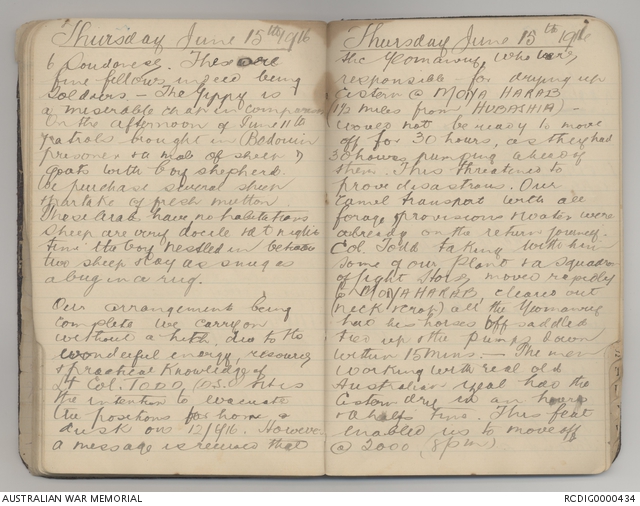 Thursday June 15th 1916
6 Soudonese. These are
fine fellows indeed being
Soldiers — The Gippy is
a miserable chap in comparison
On the afternoon of June 11th
patrols brought in Bedouin
prisoner & a mob of sheep &
goats with boy shepherd.
We purchase several sheep
& partake of fresh mutton.
These Arab have no habitations
sheep are very docile & at night
time the boy nestled in between
two sheep & lay as snug as
a bug in a rug.
Our arrangement being
complete we carry on
without a hitch due to the
wonderful energy, resource
& practical knowledge of
Lt Col. TODD, DSO. It is
the intention to evacuate
the positions for home, @
dusk on 12/6/16. However
a message is received that
Thursday June 15th 1916
the Yeomanry, who were
responsible for drying up
cistern @ MOYA HARAB
(12 miles from HUBASHIA) —
would not be ready to move
off for 30 hours, as they had
30 hours pumping ahead of
them. This threatened to
prove disastrous. Our
Camel transport with all
forage & provisions & water were
already on the return journey.
Col Todd taking with him
some of our Plant & a Squadron
of Light Horse moved rapidly
to MOYA HARAB cleared out
(neck & crop) all the Yeomanry
had his horses off saddled
tied up & the pump down
within 15 mins. — The men
working with real old
Australian zeal had the
cistern dry in an hours
& a half time. This feat
enabled us to move off
@ 2000 (8 pm)
AUSTRALIAN WAR MEMORIAL
RCDIG0000434